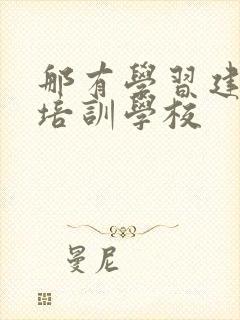 那有學習建
培訓學校
曼尼